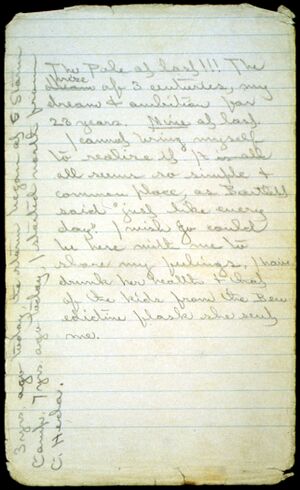 The Pole at last!!! The
prize
dream of 3 centuries, my
dream & ambition for
23 years. Mine at last.
I cannot bring myself
to realize it. It is all
all seems so simple &
common place, as Bartlett
said "just like every
day." I wish Jo could
be here with me to
share my feelings. I have
drunk her health & that
of the kids from the Ben
edictine flask she sent
me.
3 yrs. ago today the storm began at 6 Storm
Camp. 7 yrs. ago today I started north from
C. Hecla.